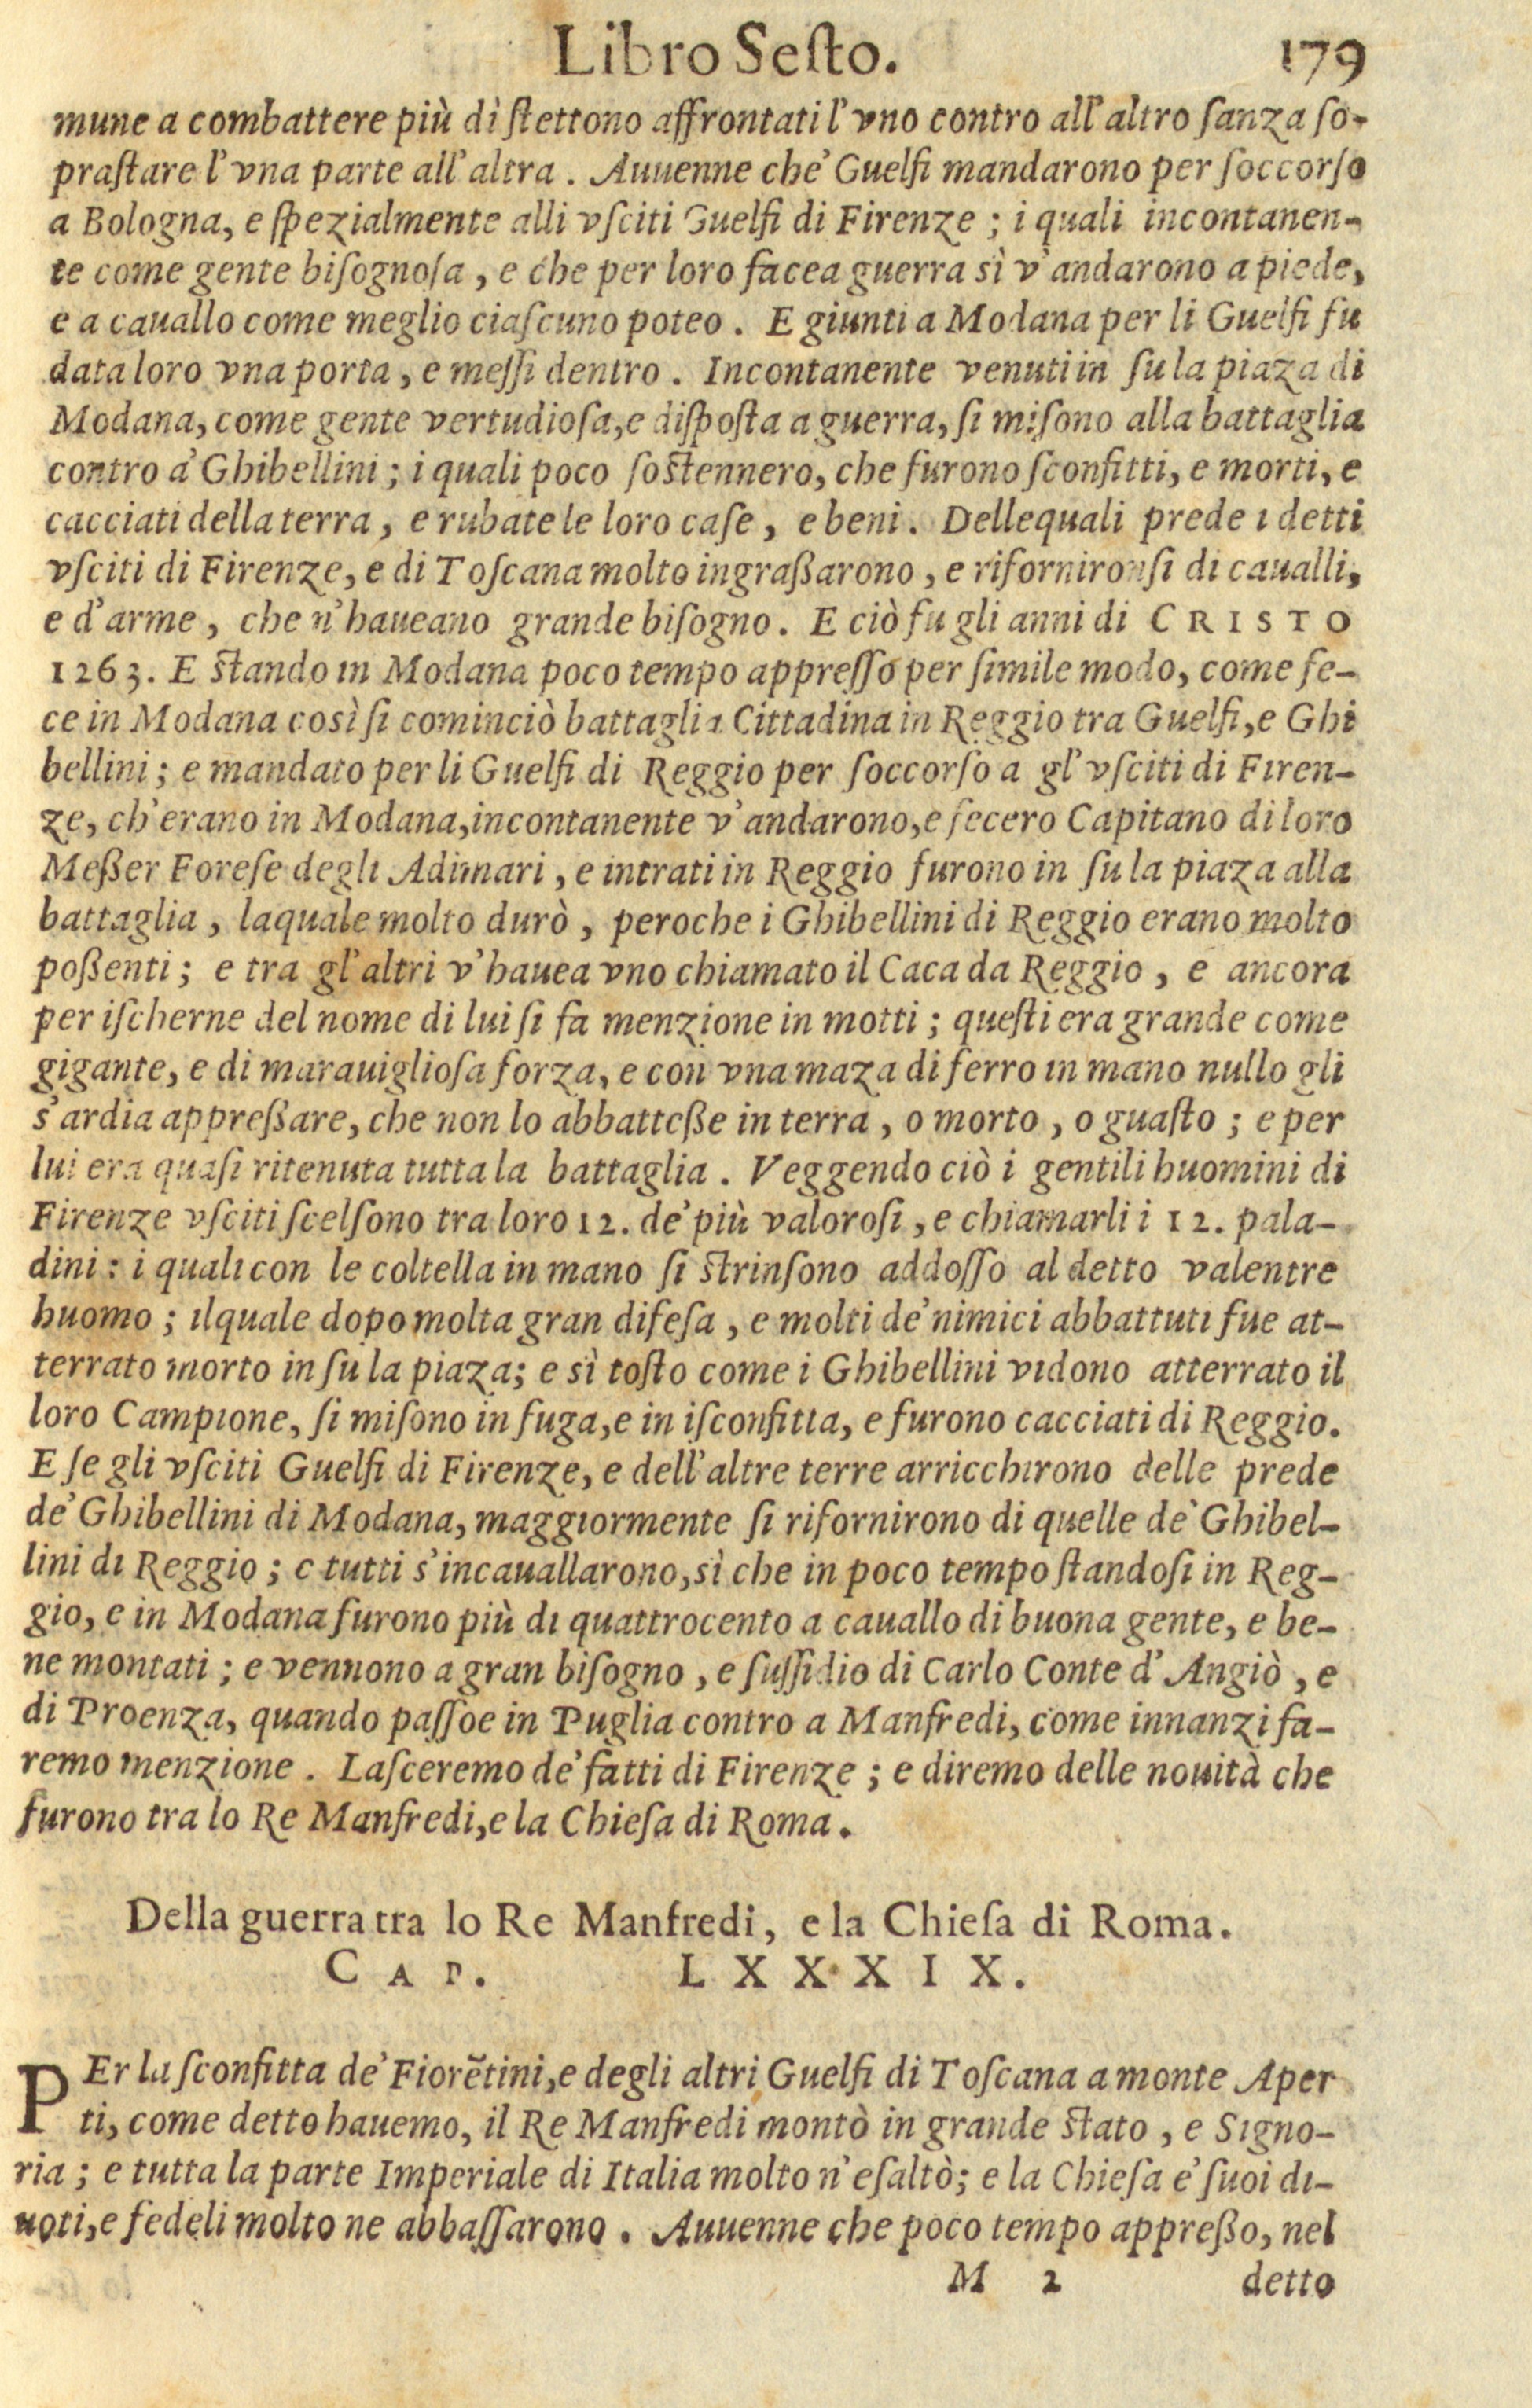 Libro Seſto. 179
mune a combattere più dì ſtettono affrontati l'vno contro all'altro ſanza ſo-
praſtare l'vna parte all'altra. Auuenne che' Guelfi mandarono per ſoccorſo
a Bologna, e ſpezialmente alli vſciti Guelfi di Firenze; i quali incontanen-
te come gente biſognoſa, e che per loro facea guerra sì v'andarono a piede,
e a cauallo come meglio ciaſcuno poteo. E giunti a Modana per li Guelfi fu
data loro vna porta, e meſſi dentro. Incontanente venuti in ſu la piaza di
Modana, come gente vertudioſa, e diſpoſta a guerra, ſi miſono alla battaglia
contro a' Ghibellini; i quali poco ſoſtennero, che furono ſconfitti, e morti, e
cacciati della terra, e rubate le loro caſe, e beni. Dellequali prede i detti
vſciti di Firenze, e di Toſcana molto ingraßarono, e rifornironſi di caualli,
e d'arme, che n'haueano grande biſogno. E ciò fu gli anni di CRISTO
1263. E ſtando in Modana poco tempo appreſſo per ſimile modo, come fe-
ce in Modana così ſi cominciò battaglia Cittadina in Reggio tra Guelfi, e Ghi
bellini; e mandato per li Guelfi di Reggio per ſoccorſo a gl'vſciti di Firen-
ze, ch'erano in Modana, incontanente v'andarono, e fecero Capitano di loro
Meßer Foreſe degli Adimari, e intrati in Reggio furono in ſu la piaza alla
battaglia, laquale molto durò, peroche i Ghibellini di Reggio erano molto
poßenti; e tra gl'altri v'hauea vno chiamato il Caca da Reggio, e ancora
per iſcherne del nome di lui ſi fa menzione in motti; queſti era grande come
gigante, e di marauiglioſa forza, e con vna maza di ferro in mano nullo gli
s'ardia appreßare, che non lo abbatteße in terra, o morto, o guaſto; e per
lui era quaſi ritenuta tutta la battaglia. Veggendo ciò i gentili huomini di
Firenze vſciti ſcelſono tra loro 12. de' più valoroſi, e chiamarli i 12. pala-
dini: i quali con le coltella in mano ſi ſtrinſono addoſſo al detto valentre
huomo; ilquale dopo molta gran difeſa, e molti de' nimici abbattuti fue at-
terrato morto in ſu la piaza; e sì toſto come i Ghibellini vidono atterrato il
loro Campione, ſi miſono in fuga, e in iſconfitta, e furono cacciati di Reggio.
E ſe gli vſciti Guelfi di Firenze, e dell'altre terre arricchirono delle prede
de' Ghibellini di Modana, maggiormente ſi rifornirono di quelle de' Ghibel-
lini di Reggio; e tutti s'incauallarono, sì che in poco tempo ſtandoſi in Reg-
gio, e in Modana furono più di quattrocento a cauallo di buona gente, e be-
ne montati; e vennono a gran biſogno, e ſuſſidio di Carlo Conte d'Angiò, e
di Proenza, quando paſſoe in Puglia contro a Manfredi, come innanzi fa-
remo menzione. Laſceremo de' fatti di Firenze; e diremo delle nouità che
furono tra lo Re Manfredi, e la Chieſa di Roma.
Della guerra tra lo Re Manfredi, e la Chieſa di Roma.
CAP. LXXXIX.
PEr la ſconfitta de' Fiorẽtini, e degli altri Guelfi di Toſcana a monte Aper
ti, come detto hauemo, il Re Manfredi montò in grande ſtato, e Signo-
ria; e tutta la parte Imperiale di Italia molto n'eſaltò; e la Chieſa e' ſuoi di-
uoti, e fedeli molto ne abbaſſarono. Auuenne che poco tempo appreßo, nel
M 2 detto